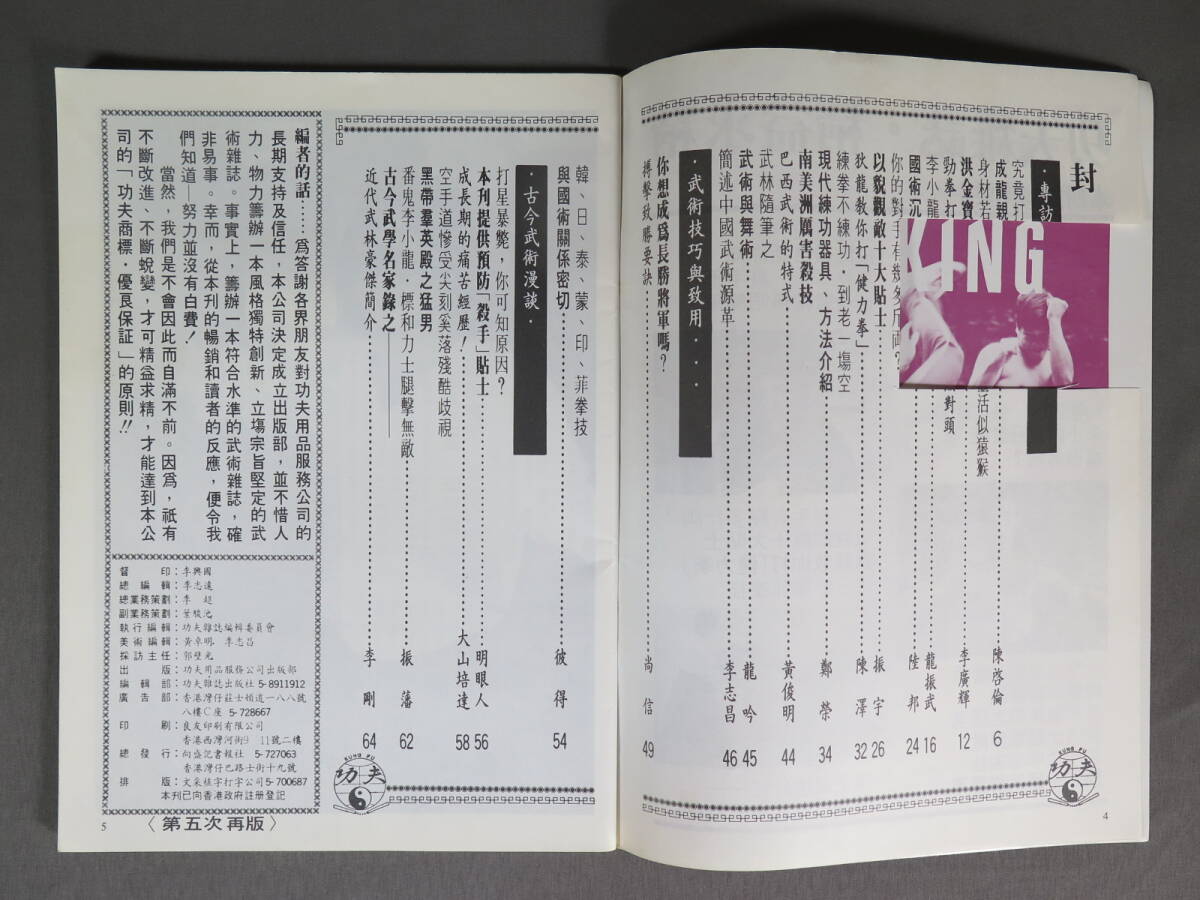 封
・專訪
究竟打
成龍親
身材若
洪金寶
勁拳打
李小龍
國術沉
你的對手有幾多斤両?
以貌觀敵十大貼士
狄龍教你打「健力拳」
練拳不練功・到老一塲空
現代練功器具、方法介紹
南美洲厲害殺技
巴西武術的特式
武林隨筆之
武術與舞術
簡述中國武術源革
活似猿猴
對頭
陳啓倫 6
李廣輝 12
龍振武 16
陸邦 24
振宇 26
陳澤 32
鄭榮 34
黃俊明 44
龍吟 45
李志昌 46
KING
・武術技巧與致用・・・
你想成爲長勝將軍嗎?
搏擊致勝要訣
尚信 49
功夫
KUNG FU
4
韓、日、泰、蒙、印、菲拳技
與國術關係密切
彼得 54
・古今武術漫談・
打星暴斃,你可知原因?
本刊提供預防「殺手」貼士
明眼人 56
成長期的痛苦經歷!
大山培達 58
空手道慘受尖刻奚落殘酷歧視
黑帶羣英殿之猛男
番鬼李小龍・標和力士腿擊無敵
振藩 62
古今武學名家錄之——
近代武林豪傑簡介
李剛 64
KUNG FU
功夫
編者的話……爲答謝各界朋友對功夫用品服務公司的
長期支持及信任,本公司決定成立出版部,並不惜人
力、物力籌辦一本風格獨特創新、立塲宗旨堅定的武
術雜誌。事實上,籌辦一本符合水準的武術雜誌,確
非易事。幸而,從本刊的暢銷和讀者的反應,便令我
們知道—努力並沒有白費!
當然,我們是不會因此而自滿不前。因爲,祇有
不斷改進、不斷蛻變,才可精益求精,才能達到本公
司的「功夫商標・優良保証」的原則!!
督印:李興國
總編輯:李志遠
總業務策劃:李超
副業務策劃:葉駿池
執行編輯:功夫雜誌編輯委員會
美術編輯:黃卓明 李志昌
採訪主任:郭璧光
出版:功夫用品服務公司出版部
編輯部:功夫雜誌出版社 5-8911912
廣告部:香港灣仔莊士頓道一八八號
八樓C座 5-728667
印刷:良友印刷有限公司
香港西灣河街9 11號二樓
總發行:向盛記書報社 5-727063
香港灣仔巴路士街十九號
排版:文采植字打字公司5-700687
本刊已向香港政府註册登記
5
〈第五次再版〉